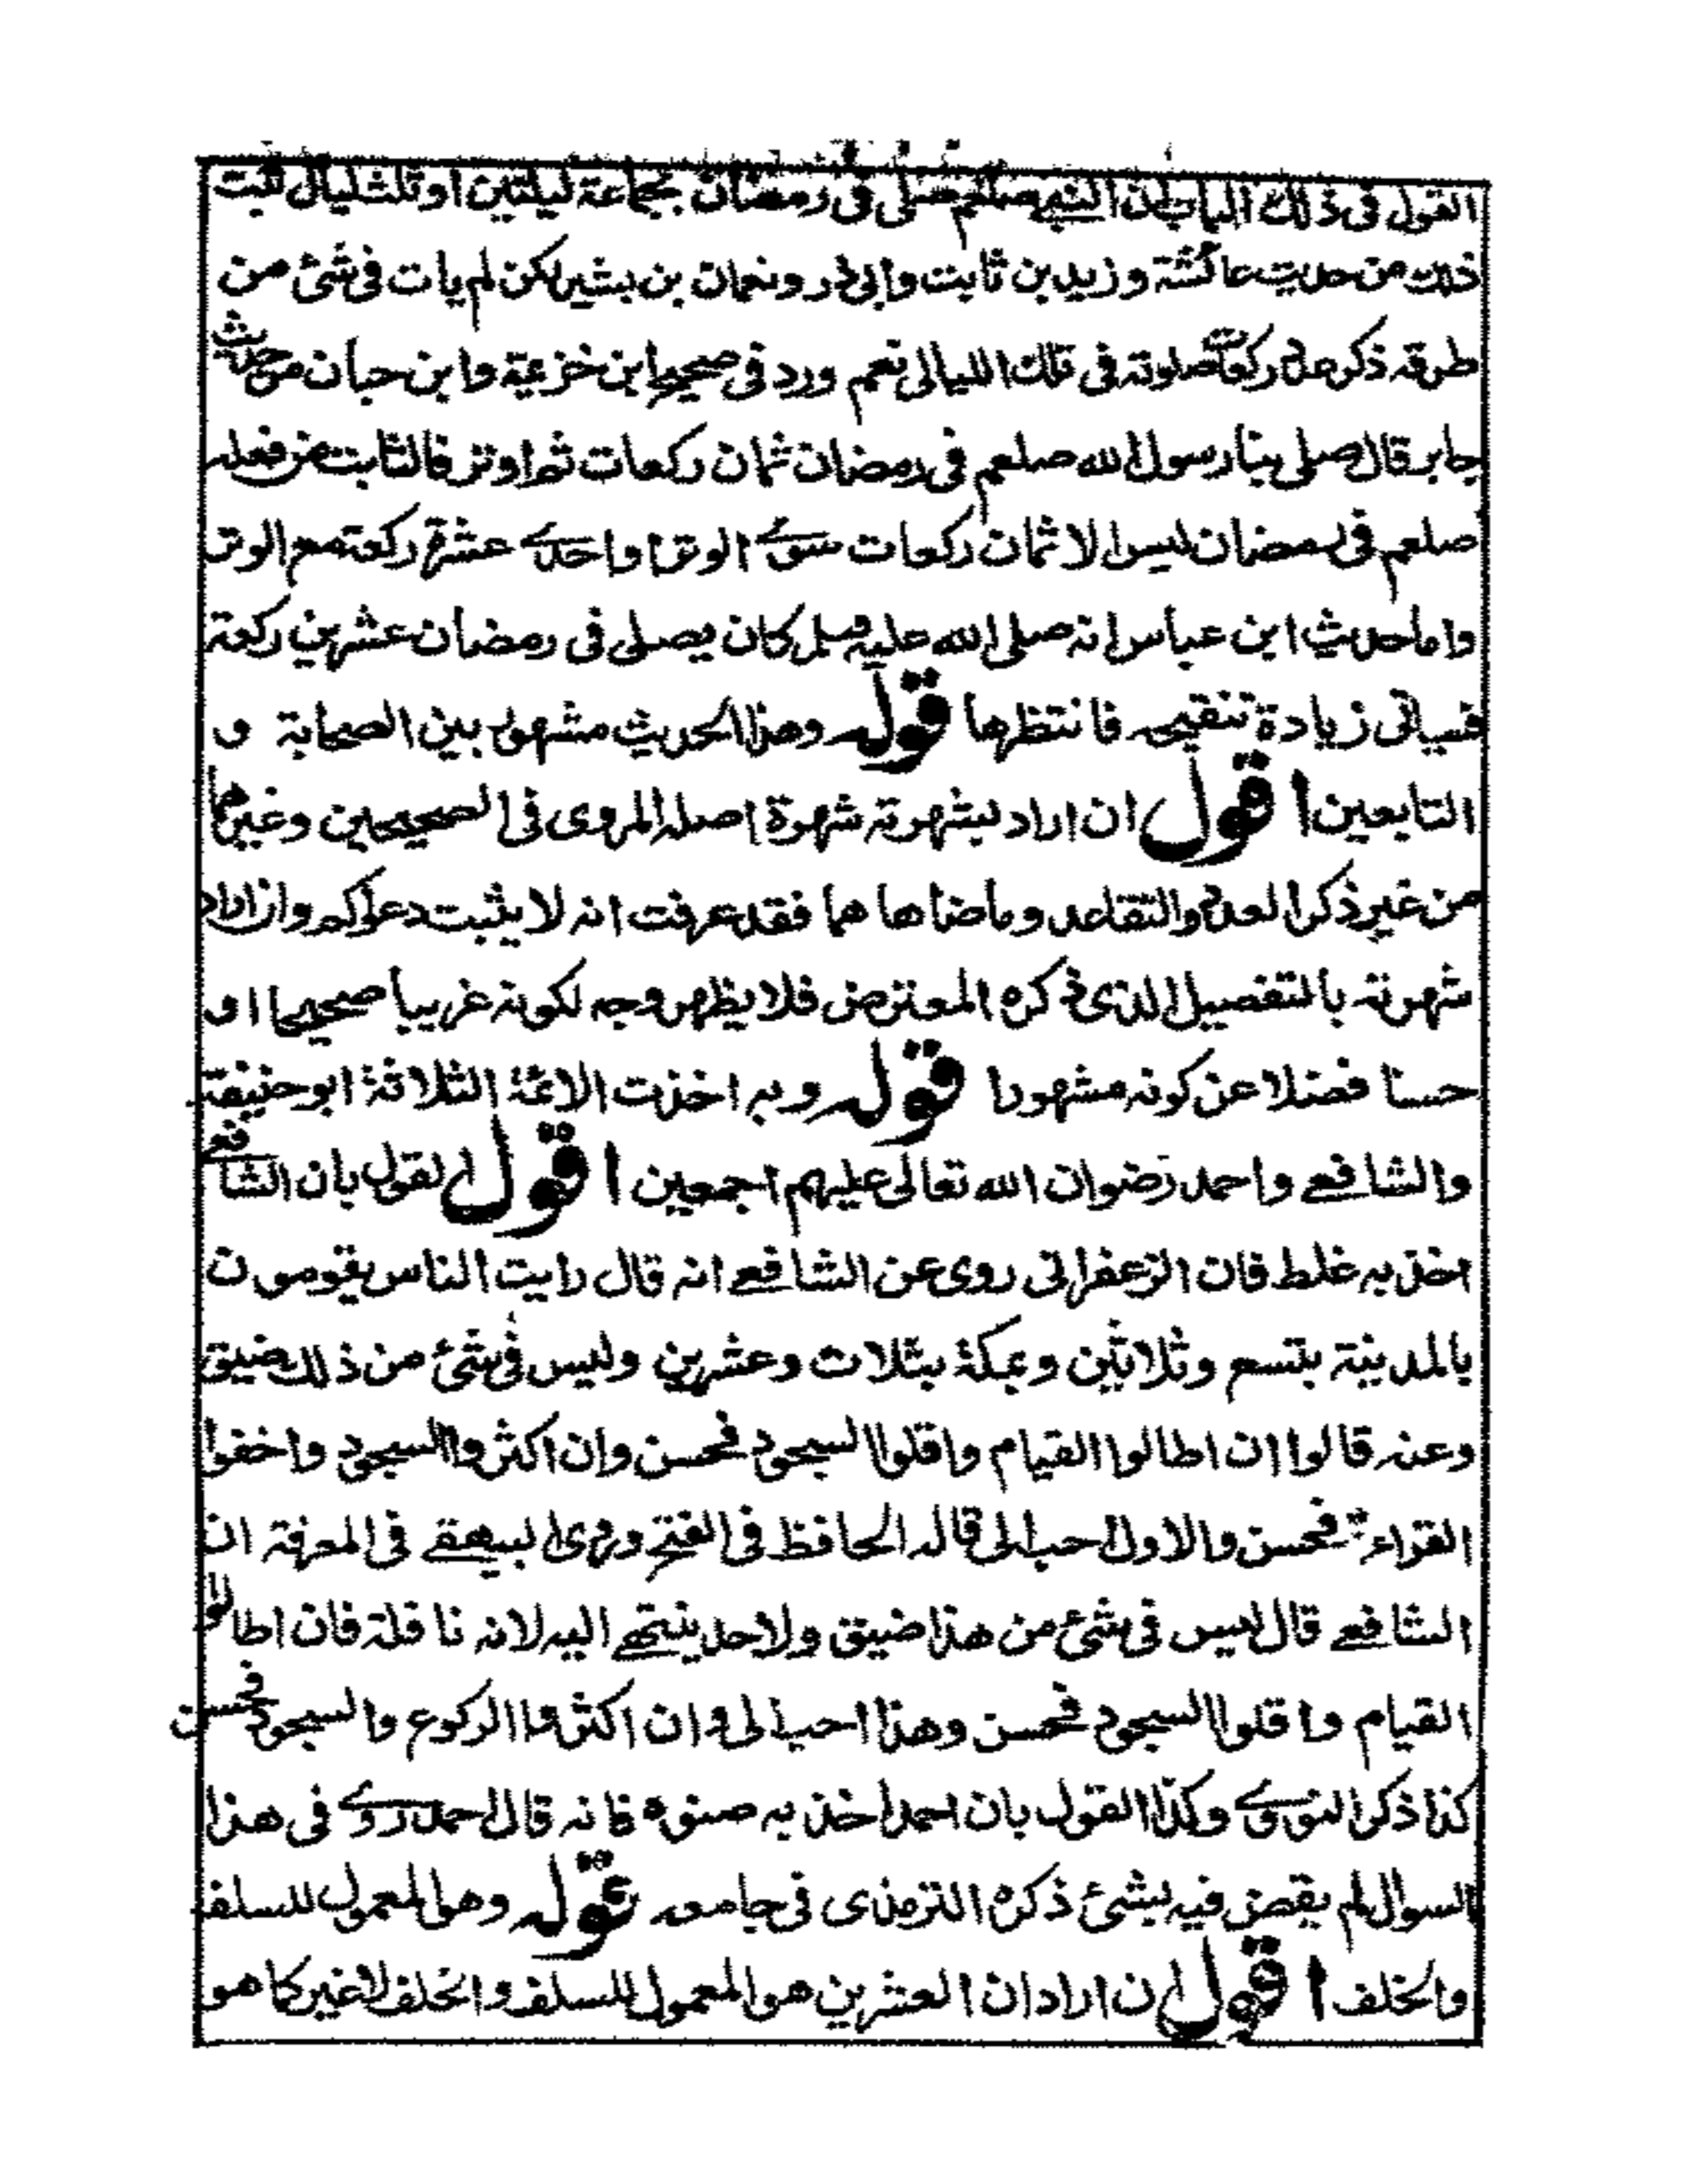 القول فى ذلك الباب ان النبي صلعم صلى فى رمضان بجماعة ليلتين او ثلث ليال ثبت
ذلك من حديث عائشة وزيد بن ثابت وابى ذر ونعمان بن بشير لكن لم يات فى شئ من
طرقه ذكر عدد ركعات صلوته فى تلك الليالى نعم ورد فى صحيح ابن خزيمة وابن حبان من حديث
جابر قال صلى بنا رسول الله صلعم فى رمضان ثمان ركعات ثم اوتر فالثابت من فعله
صلعم فى رمضان ليس الا ثمان ركعات سوى الوتر او احدى عشرة ركعة مع الوتر
واما حديث ابن عباس انه صلى الله عليه وسلم كان يصلى فى رمضان عشرين ركعة
فسياتى زيادة تنقيحه فانتظرها قوله وهذا الحديث مشهور بين الصحابة و
التابعين اقول ان اراد بشهرته شهرة اصله المروى فى الصحيحين وغيرهما
من غير ذكر العدد والتقاعد وماضاهاهما فقد عرفت انه لا يثبت دعواكم وان اراد
شهرته بالتفصيل الذى ذكره المعترض فلا يظهر وجه لكونه غريبا صحيحا او
حسنا فضلا عن كونه مشهورا قوله وبه اخذت الائمة الثلاثة ابو حنيفة
والشافعے واحمد رضوان الله تعالى عليهم اجمعين اقول القول بان الشافعے
اخذ به غلط فان الزعفرانى روى عن الشافعے انه قال رايت الناس يقومون
بالمدينة بتسع وثلاثين وبمكة بثلاث وعشرين وليس فى شئ من ذلك ضيق
وعنه قالوا ان اطالوا القيام واقلوا السجود فحسن وان اكثروا السجود واخفوا
القراءة فحسن والاول احب الى قاله الحافظ فى الفتح وروى البيهقے فى المعرفة ان
الشافعے قال ليس فى شئ من هذا ضيق ولا حد ينتهے اليه لانه نافلة فان اطالوا
القيام واقلوا السجود فحسن وهذا احب الى وان اكثروا الركوع والسجود فحسن
كذا ذكر النووے وكذا القول بان احمد اخذ به صنوه فانه قال احمد روے فى هذا
السوال لم يقض فيه بشئ ذكره الترمذى فى جامعه قوله وهو المعمول للسلف
والخلف اقول ان اراد ان العشرين هو المعمول للسلف والخلف لا غير كما هو